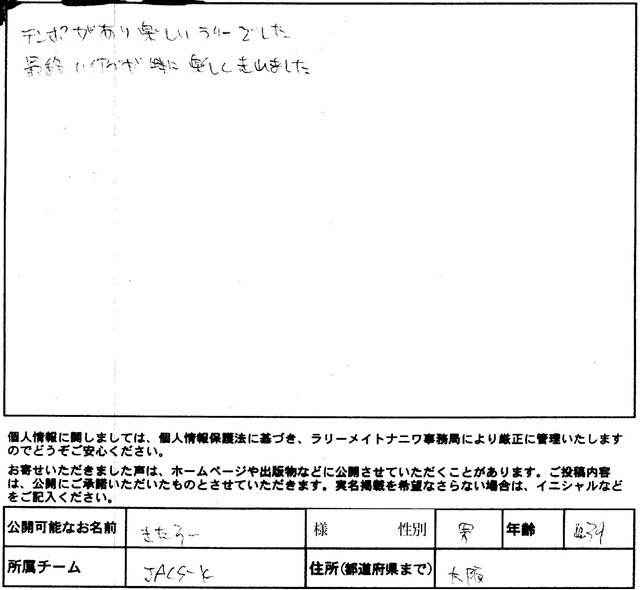 テンポがあり楽しいラリーでした
最終ハイアベが特に楽しく走れました
個人情報に関しましては、個人情報保護法に基づき、ラリーメイトナニワ事務局により厳正に管理いたします
のでどうぞご安心ください。
お寄せいただきました声は、ホームページや出版物などに公開させていただくことがあります。ご投稿内容
は、公開にご承諾いただいたものとさせていただきます。実名掲載を希望なさらない場合は、イニシャルなど
をご記入ください。
公開可能なお名前 きたろー 様 性別 男 年齢
所属チーム JACS-K 住所(都道府県まで) 大阪